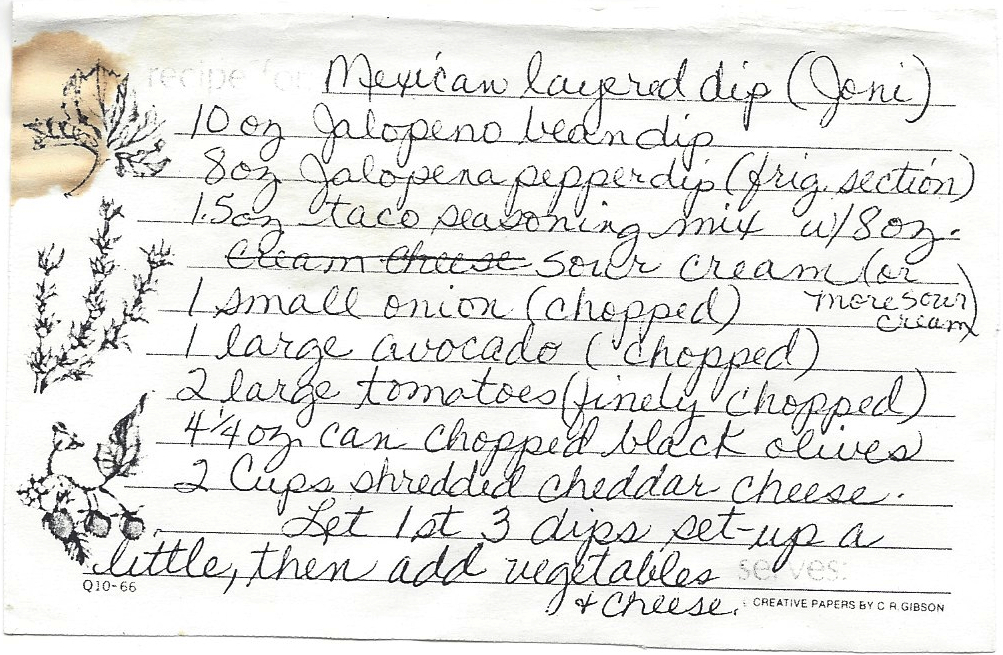 recipe for: Mexican layered dip (Joni)
10 oz Jalopeno bean dip
8oz Jalopena pepper dip (frig. section)
1.5oz taco seasoning mix w/8oz.
cream cheese sour cream (or
more sour
cream)
1 small onion (chopped)
1 large avocado (chopped)
2 large tomatoes (finely chopped)
4 1/4 oz. can chopped black olives
2 Cups shredded cheddar cheese.
Let 1st 3 dips set-up a
little, then add vegetables
serves:
& cheese.
Q10-66
CREATIVE PAPERS BY C.R. GIBSON